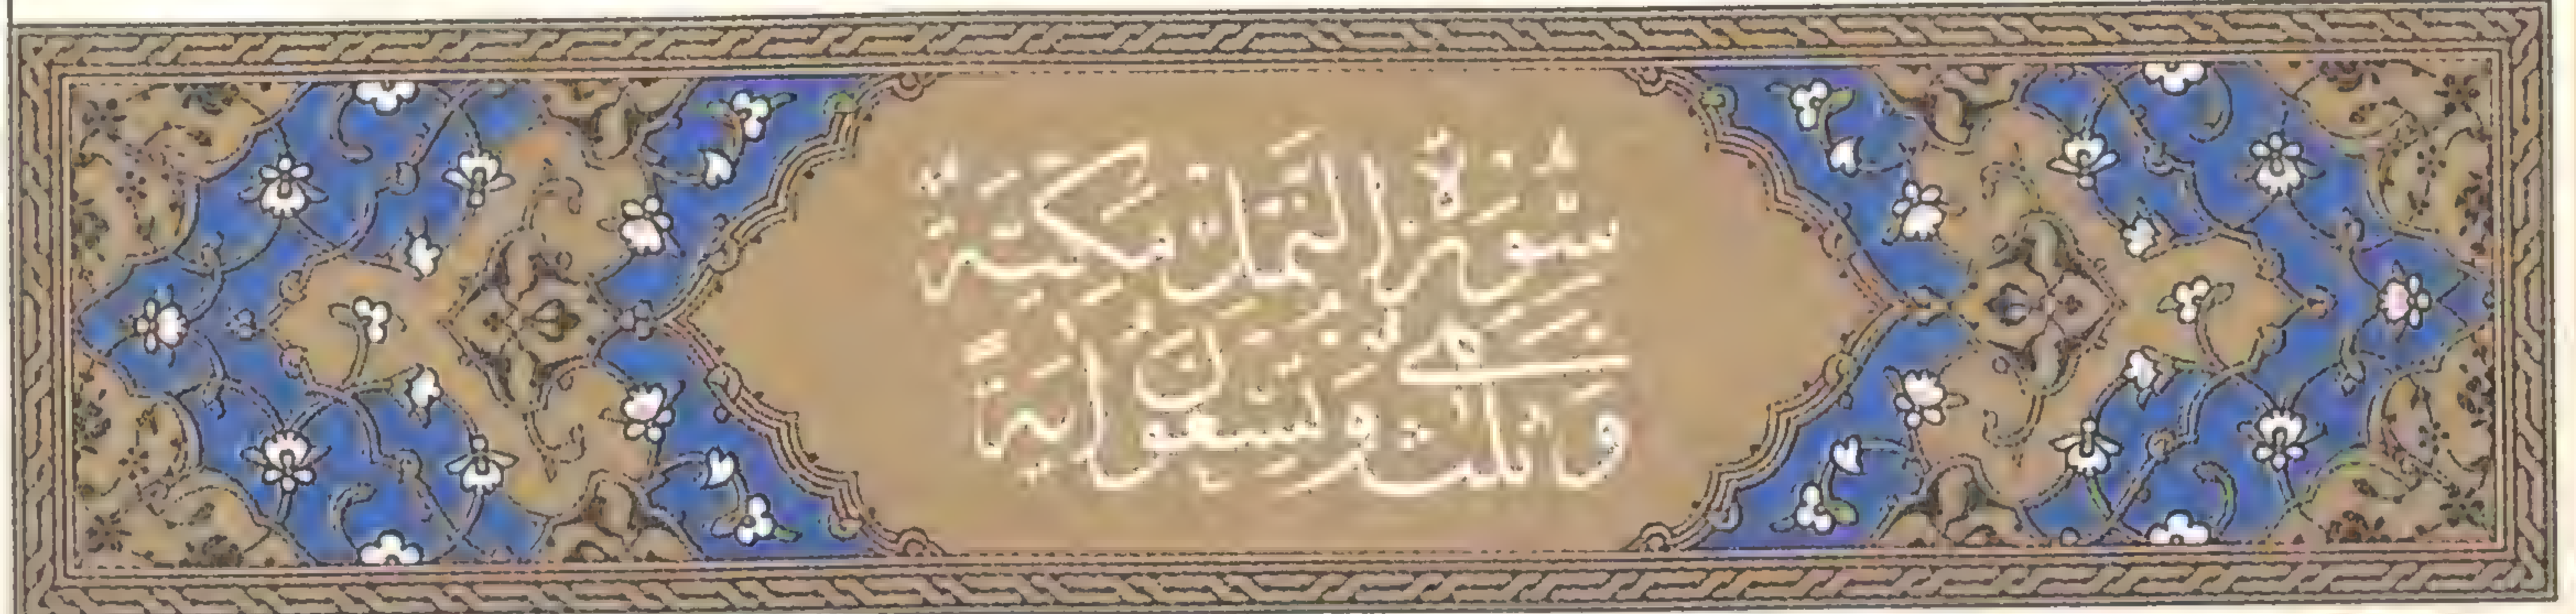 سُورَةُ النَّمْلِ مَكِّيَّةٌ
وَهِيَ ثَلَاثٌ وَتِسْعُونَ آيَةً